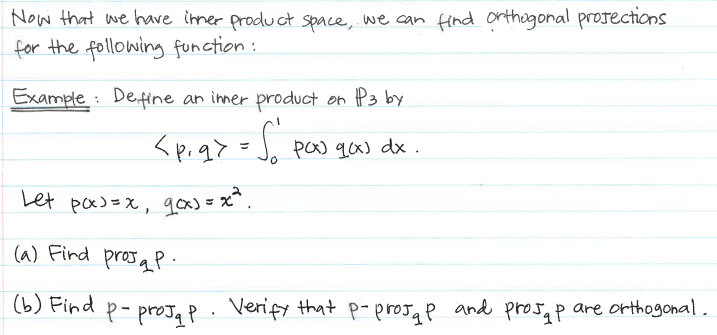 Now that we have inner product space, we can find orthogonal projections
for the following function :
Example : Define an inner product on ℙ3 by
<p,q> = ∫₀¹ p(x) q(x) dx .
Let p(x)=x, q(x)=x².
(a) Find proj_q p .
(b) Find p - proj_q p . Verify that p-proj_q p and proj_q p are orthogonal.